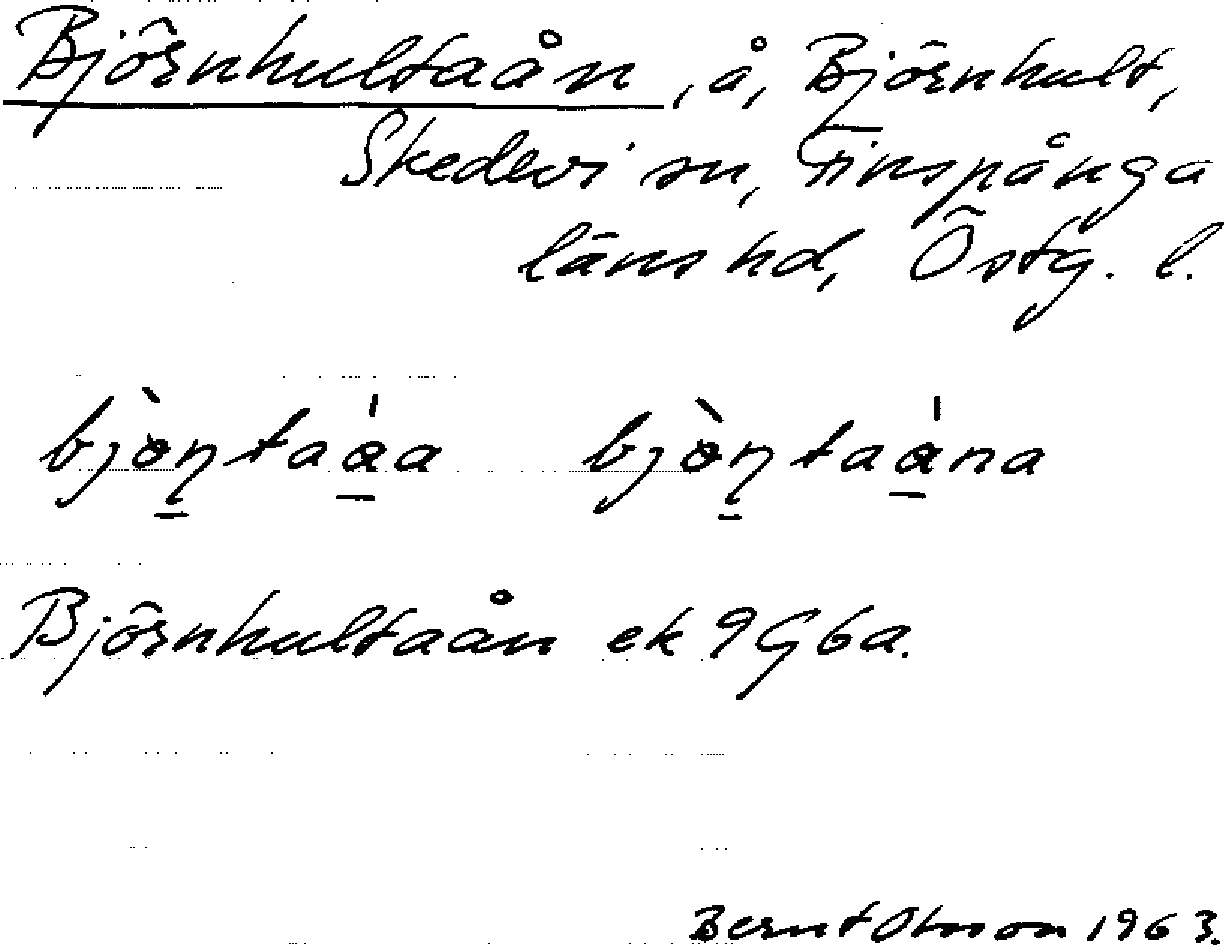 Björnhultaån, å, Björnhult,
Skedevi sn, Finspånga
läns hd, Östg. l.
bjòṇtaáa bjòṇtaána
Björnhultaån ek 9G6a.
Bernt Olsson 1963.